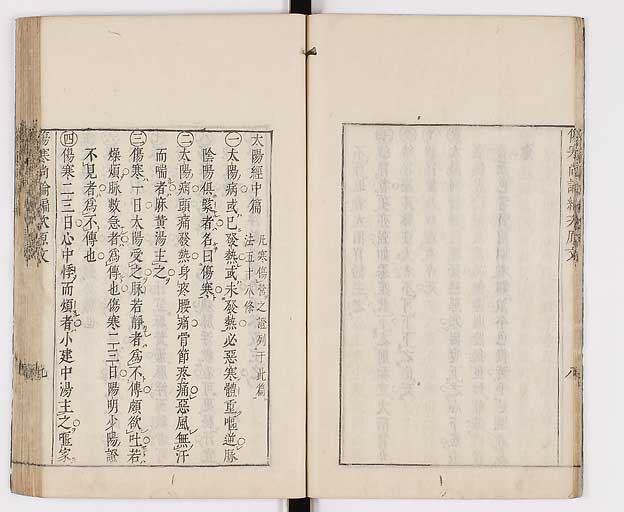 太陽經中篇
凡寒傷營之證列于此篇
法五十八條
㊀太陽病或已發熱或未發熱必惡寒體重嘔逆脉
陰陽俱緊者名曰傷寒
㊁太陽病頭痛發熱身疼腰痛骨節疼痛惡風無汗
而喘者麻黃湯主之
㊂傷寒一日太陽受之脉若靜者爲不傳頗欲吐若
燥煩脉數急者爲傳也傷寒二三日陽明少陽證
不見者爲不傳也
㊃傷寒二三日心中悸而煩者小建中湯主之嘔家
傷寒尚論編次原文
九